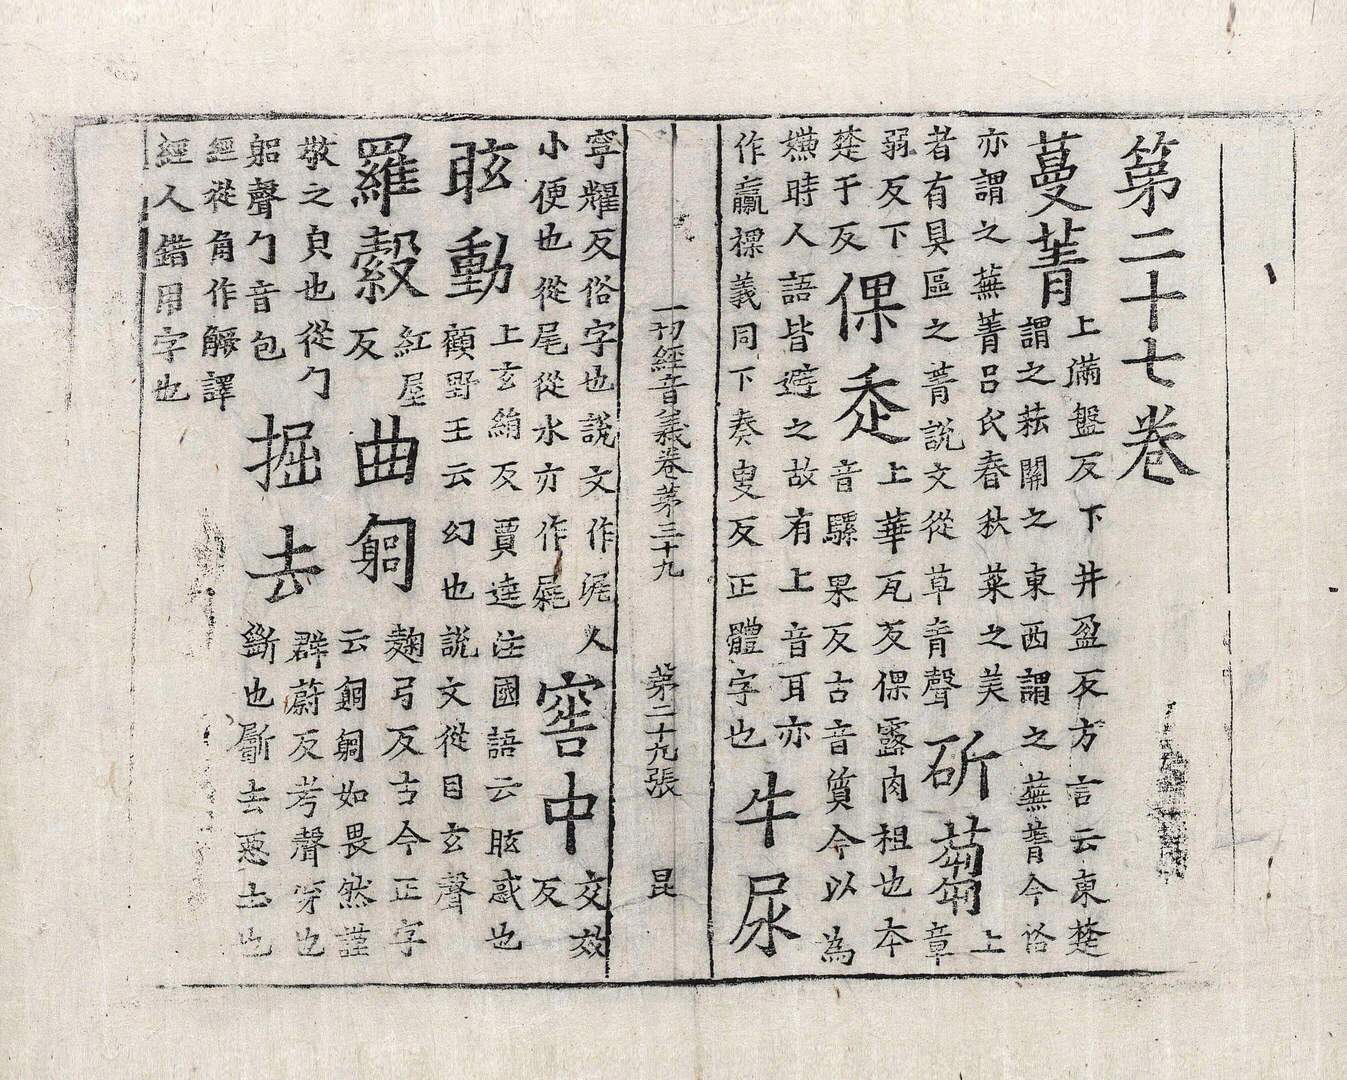 第二十七卷
蔓菁
上滿盤反下井盈反方言云東楚
謂之菘關之東西謂之蕪菁今俗
亦謂之蕪菁呂氏春秋菜之美
者有具區之菁說文從草青聲
斫蒭
上
章
弱反下
楚于反
倮走
上華瓦反倮露肉袒也本
音騾果反古音質今以為
嫌時人語皆避之故有上音耳亦
作臝裸義同下奏叟反正體字也
牛尿
一切經音義卷第三十九 第二十九張 昆
寧耀反俗字也說文作㞙人
小便也從尾從水亦作𡲔
窖中
交效
反
眩動
上玄絢反賈逵注國語云眩惑也
顧野王云幻也說文從目玄聲
羅縠
紅屋
反
曲躬
麴弓反古今正字
云匑匑如畏然謹
敬之皃也從勹
躳聲勹音包
掘去
群蔚反考聲穿也
斸也斸去惡土也
經從角作觼譯
經人錯用字也